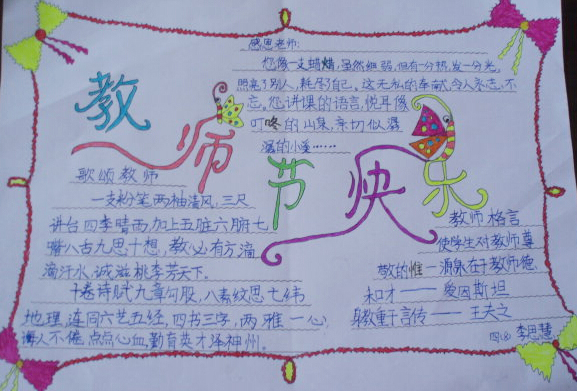 教师节快乐
感恩老师:
您像一支蜡烛,虽然细弱,但有一分热,发一分光,
照亮了别人,耗尽了自己。这无私的奉献,令人永志,不
忘。您讲课的语言,悦耳像
叮咚的山泉,亲切似潺
潺的小溪……
歌颂教师
一支粉笔,两袖清风,三尺
讲台四季晴雨,加上五脏六腑七
嘴八舌九思十想,教必有方滴
滴汗水,诚滋桃李芳天下.
十卷诗赋九章勾股,八索纹思七纬
地理,连同六艺五经,四书三字,两雅一心,
诲人不倦,点点心血,勤育英才泽神州。
教师格言
使学生对教师尊
敬的惟一源泉在于教师德
和才——爱因斯坦
躬教重于言传——王夫之
四(3) 李思慧